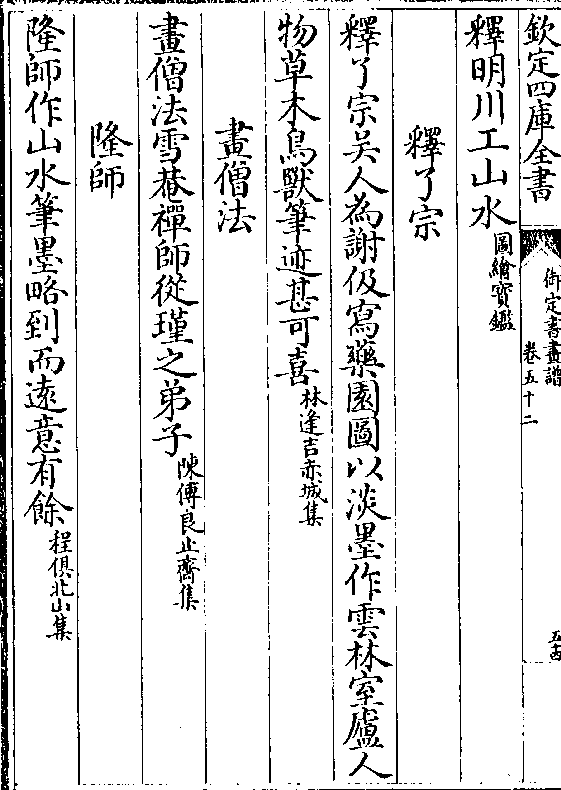 欽定四庫全書
御定書畫譜
卷五十二
五十四
釋明川工山水圖繪寳鑑
釋了宗
釋了宗吳人為謝伋寫藥園圖以淡墨作雲林室廬人
物草木鳥獸筆迹甚可喜林逢吉赤城集
畫僧法
畫僧法雪菴禪師從瑾之弟子陳傅良止齋集
隆師
隆師作山水筆墨略到而遠意有餘程俱北山集